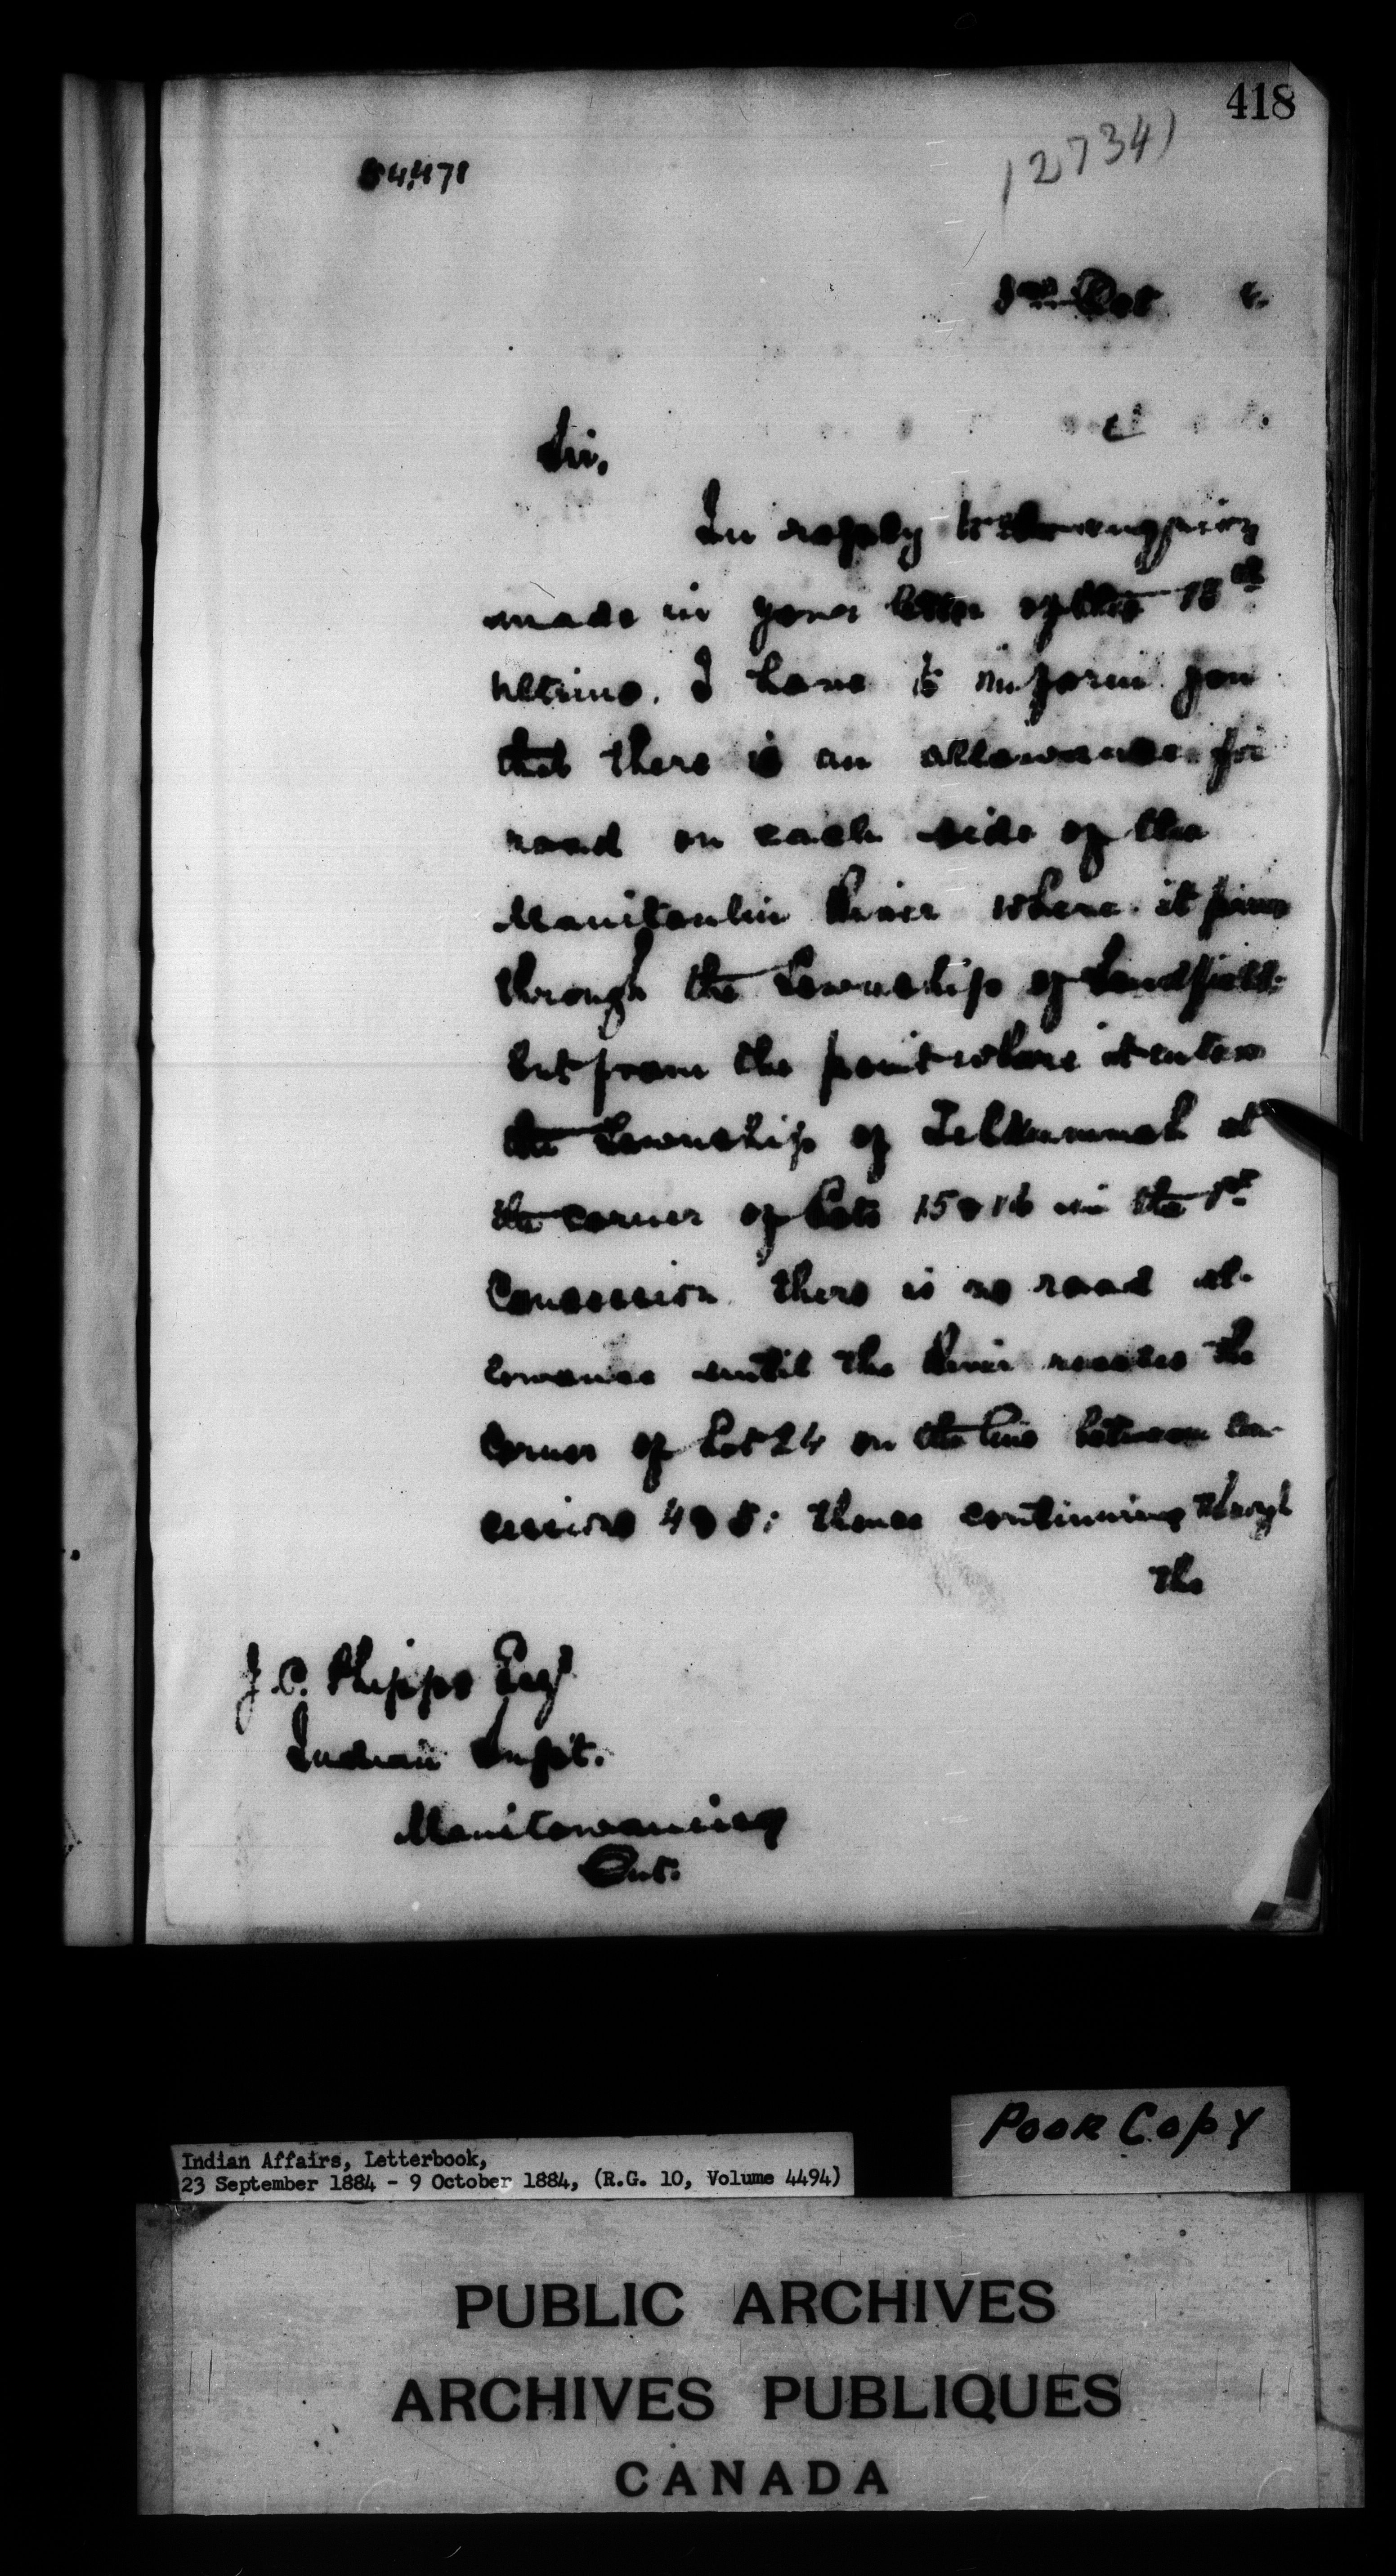 418
54,478
12734)
Oct
Sir,
In reply to the enquiry
made in your letter of the 15th
ultimo. I have to inform you
that there is an allowance for
road on each side of the
Manitoulin River where it passes
through the Township of Sandfield
but from the point where it enters
the Township of Tehkummah at
the corner of Lots 15 & 16 in the 1st
Concession there is no road al-
lowance until the River reaches the
corner of Lot 24 on the line between Con-
cessions 4 & 5; thence continuing through
the
J. C. Phipps Esqr
Indian Supt.
Manitowaning
Ont.
Poor Copy
Indian Affairs, Letterbook,
23 September 1884 - 9 October 1884, (R.G. 10, Volume 4494)
PUBLIC ARCHIVES
ARCHIVES PUBLIQUES
CANADA